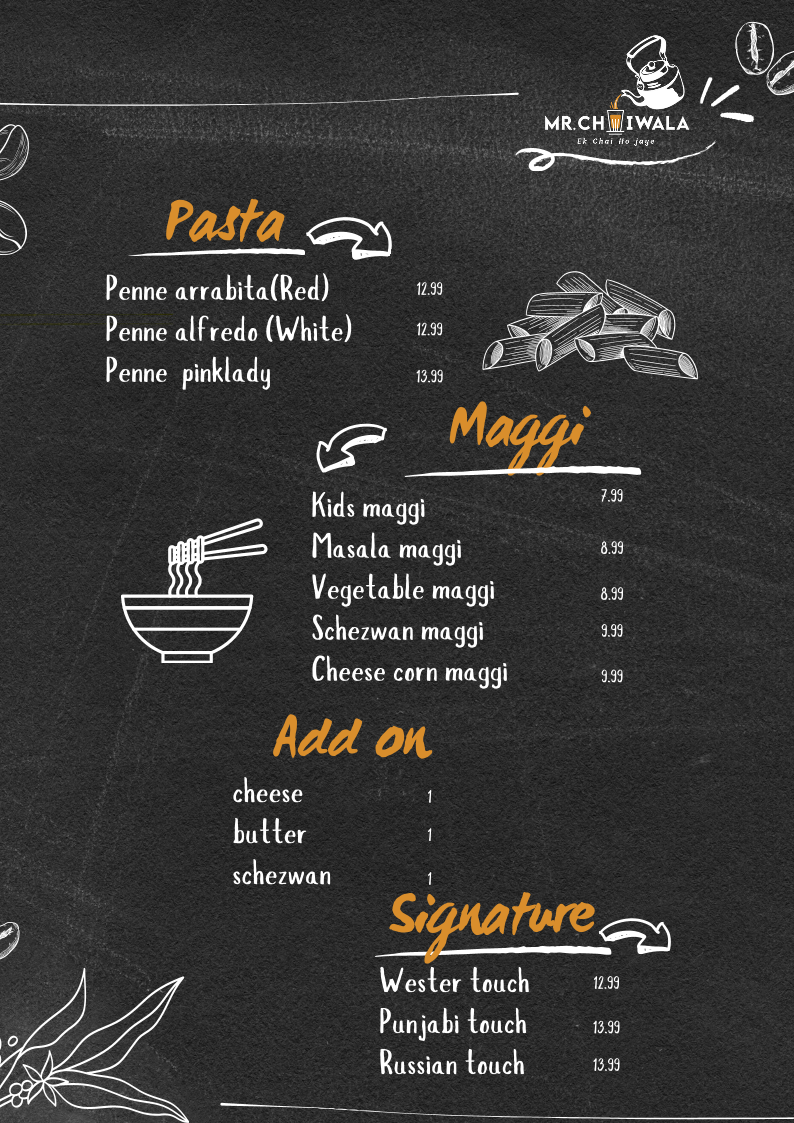 MR.CHAIWALA
Ek Chai Ho jaye
Pasta
Penne arrabita(Red) 12.99
Penne alfredo (White) 12.99
Penne pinklady 13.99
Maggi
Kids maggi 7.99
Masala maggi 8.99
Vegetable maggi 8.99
Schezwan maggi 9.99
Cheese corn maggi 9.99
Add on
cheese 1
butter 1
schezwan 1
Signature
Wester touch 12.99
Punjabi touch 13.99
Russian touch 13.99